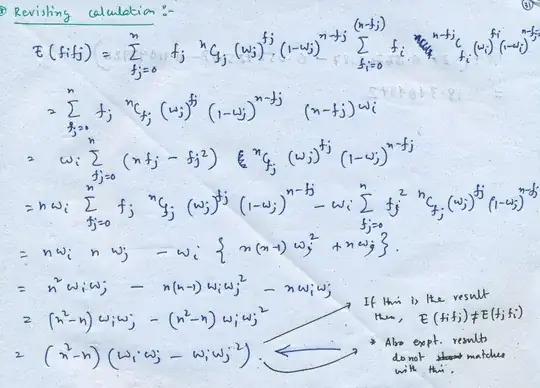 Revisting calculation :-
(31)
E(fifj) = \sum_{fj=0}^{n} fj ^nC_{fj} (wj)^{fj} (1-wj)^{n-fj} \sum_{fi=0}^{(n-fj)} fi ^{n-fj}C_{fi} (wi)^{fi} (1-wi)^{n-fj-
= \sum_{fj=0}^{n} fj ^nC_{fj} (wj)^{fj} (1-wj)^{n-fj} (n-fj) wi
= wi \sum_{fj=0}^{n} (nfj - fj^2) ^nC_{fj} (wj)^{fj} (1-wj)^{n-fj}
= nwi \sum_{fj=0}^{n} fj ^nC_{fj} (wj)^{fj} (1-wj)^{n-fj} - wi \sum_{fj=0}^{n} fj^2 ^nC_{fj} (wj)^{fj} (1-wj)^{n-fj}
= nwi nwj - wi { n(n-1) wj^2 + nwj }.
= n^2 wiwj - n(n-1) wiwj^2 - nwiwj
= (n^2-n) wiwj - (n^2-n) wiwj^2
= (n^2-n) (wiwj - wiwj^2).
If this is the result
then, E(fifj) ≠ E(fjfi)
* Also expt. results
do not matches
with this.